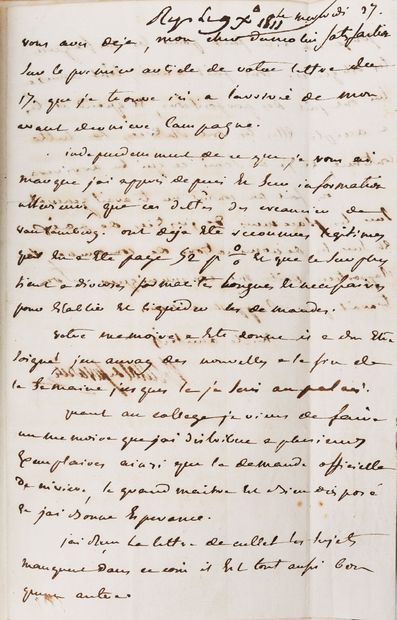 Rep. Le 9 Xbre 1811 mercredi 27.
vous avez deja, mon cher satisfaction
sur le premier article de votre lettre du
17 que je trouve ici a l'arrivée de mon
avant derniere Campagne.
independemment de ce que je vous ai
marqué j'ai appris depuis et sur information
ulterieure, que ces dettes des creanciers de
ont deja été reconnues legitimes
payé 52 p % et que le surplus
tient a diverses formalités longues et necessaires
pour etablir et liquider les demandes.
Votre memoire a eté donné il a du etre
soigné j'en aurai des nouvelles a la fin de
la semaine, jusques la je suis au palais.
quant au college je viens de faire
un memoire que j'ai distribué a plusieurs
exemplaires ainsi que la demande officielle
le grand maitre est bien disposé
et j'ai bonne Esperance.
j'ai la lettre de les sujets
manquent dans ce coin il est tout aussi bon
qu'un autre.